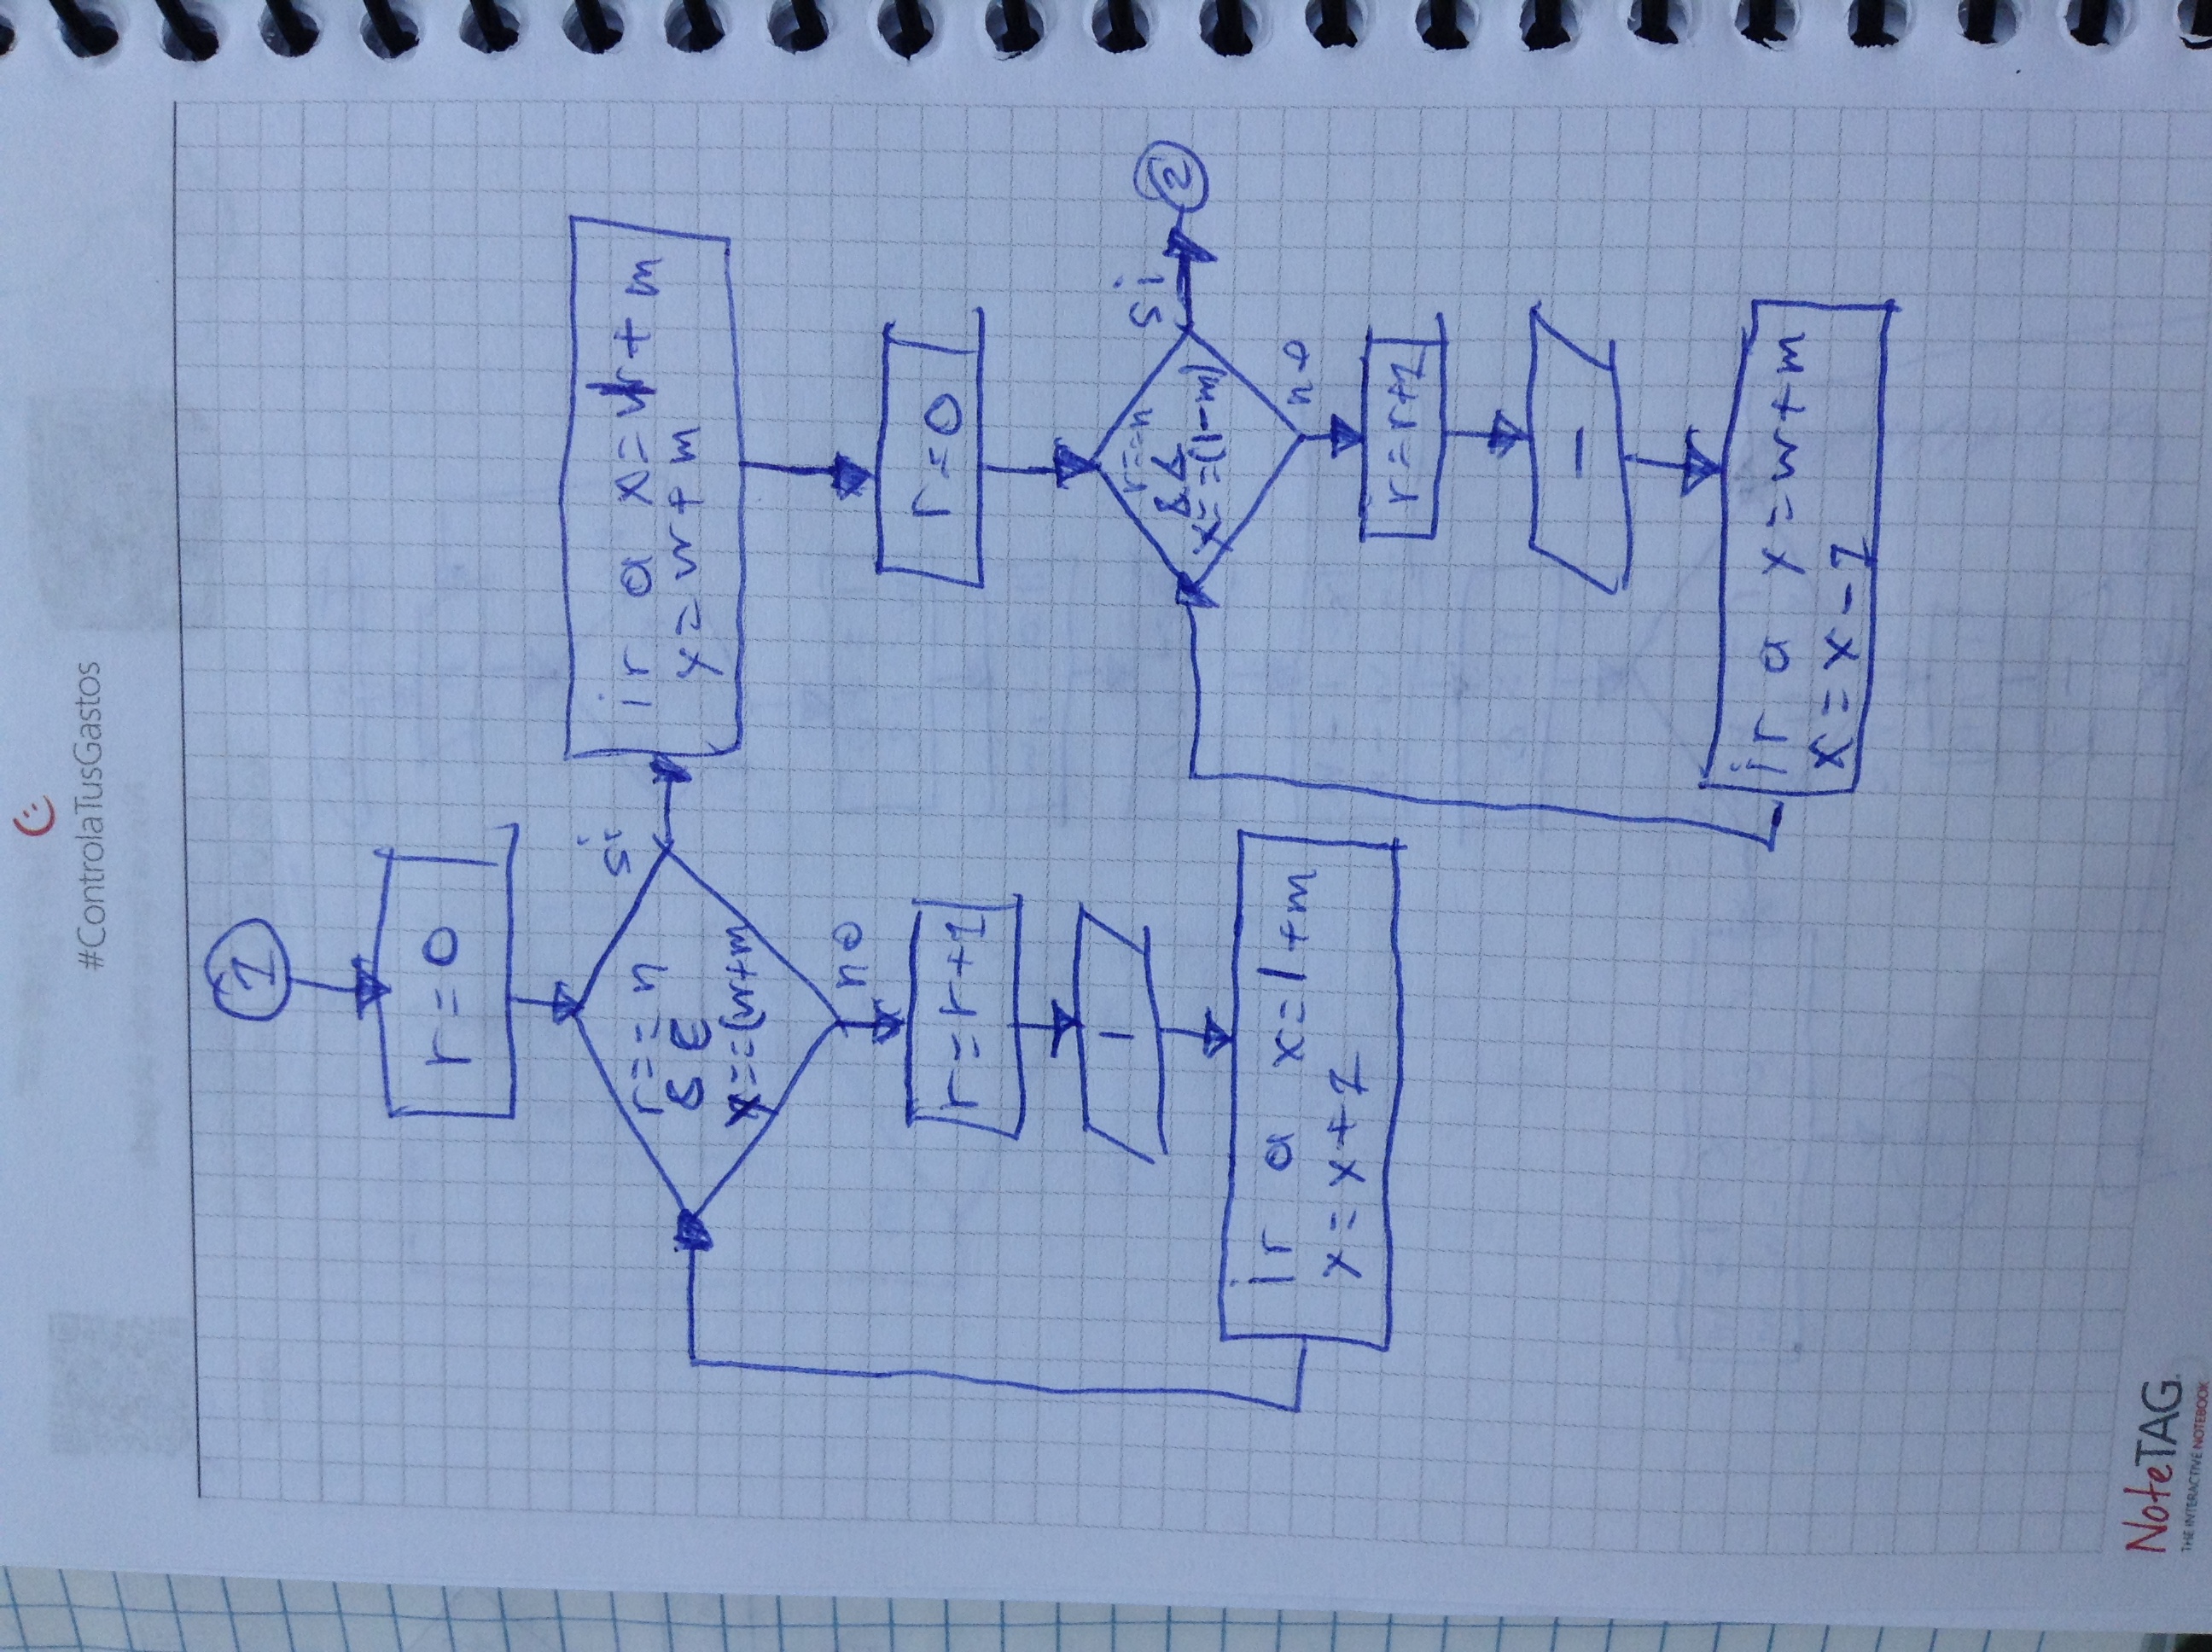 #ControlaTusGastos
1
r=0
r==n
&&
x==(w+m
si
no
ir a x=w+m
y=w+m
r=r+1
|
ir a x=l+m
y=y+1
r=0
r==n
&&
x==(l-m)
si
2
no
r=r+1
—
ir a y=w+m
x=x-1
NoteTAG
THE INTERACTIVE NOTEBOOK